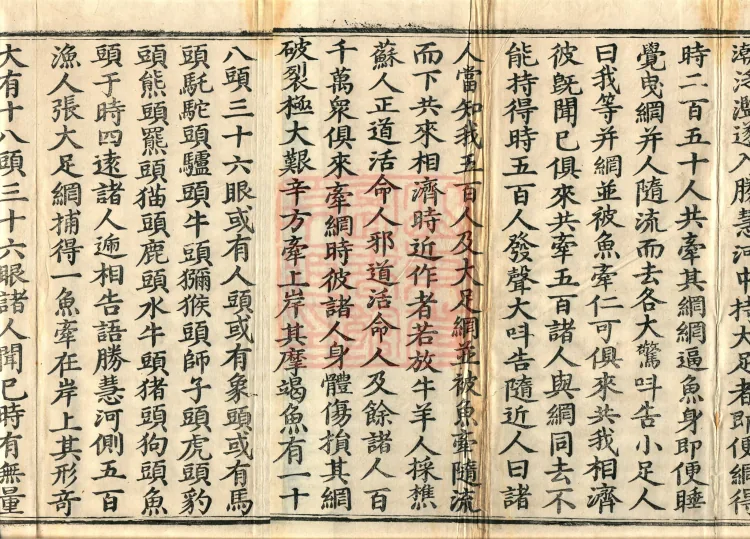 遂入勝慧河中持大足者即便網得
時二百五十人共牽其網網逼魚身即便睡
覺曳網并人隨流而去各大驚呌告小足人
曰我等并網並被魚牽仁可俱來共我相濟
彼旣聞已俱來共牽五百諸人與網同去不
能持得時五百人發聲大呌告隨近人曰諸
人當知我五百人及大足網並被魚牽隨流
而下共來相濟時近作者若放牛羊人採樵
蘇人正道活命人邪道活命人及餘諸人百
千萬衆俱來牽網時彼諸人身體傷損其網
破裂極大艱辛方牽上岸其摩竭魚有一十
八頭三十六眼或有人頭或有象頭或有馬
頭馲駝頭驢頭牛頭獼猴頭師子頭虎頭豹
頭熊頭羆頭猫頭鹿頭水牛頭猪頭狗頭魚
頭于時四遠諸人逓相告語勝慧河側五百
漁人張大足網捕得一魚牽在岸上其形奇
大有十八頭三十六眼諸人聞已時有無量